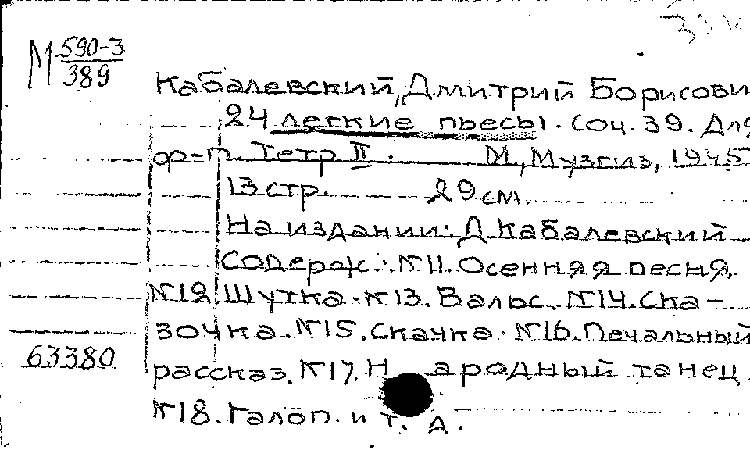 М 590-3
389
Кабалевский, Дмитрий Борисови
24 легкие пьесы. Соч. 39. Для
ф-п. Тетр II. М, Музгиз, 1945
13 стр. 29 см
На издании: Д Кабалевский
Содерж.: №11. Осенняя песня.
№12 Шутка. №13. Вальс. №14. Ска-
зочка. №15. Скачка. №16. Печальный
63380
рассказ. №17. Народный танец
№18. Галоп. и т. д.